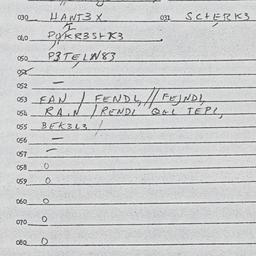 030 HANT3X 031 SCHERK3
040 POKR3SHK3
050 P3TELW83
052 —
053 FAN / FENDL, // FEJNDL
054 RAIN / RENDL QEL TEPL,
055 BEK3L3 /
056 —
057 —
058 0
059 0
060 0
070 0
080 0